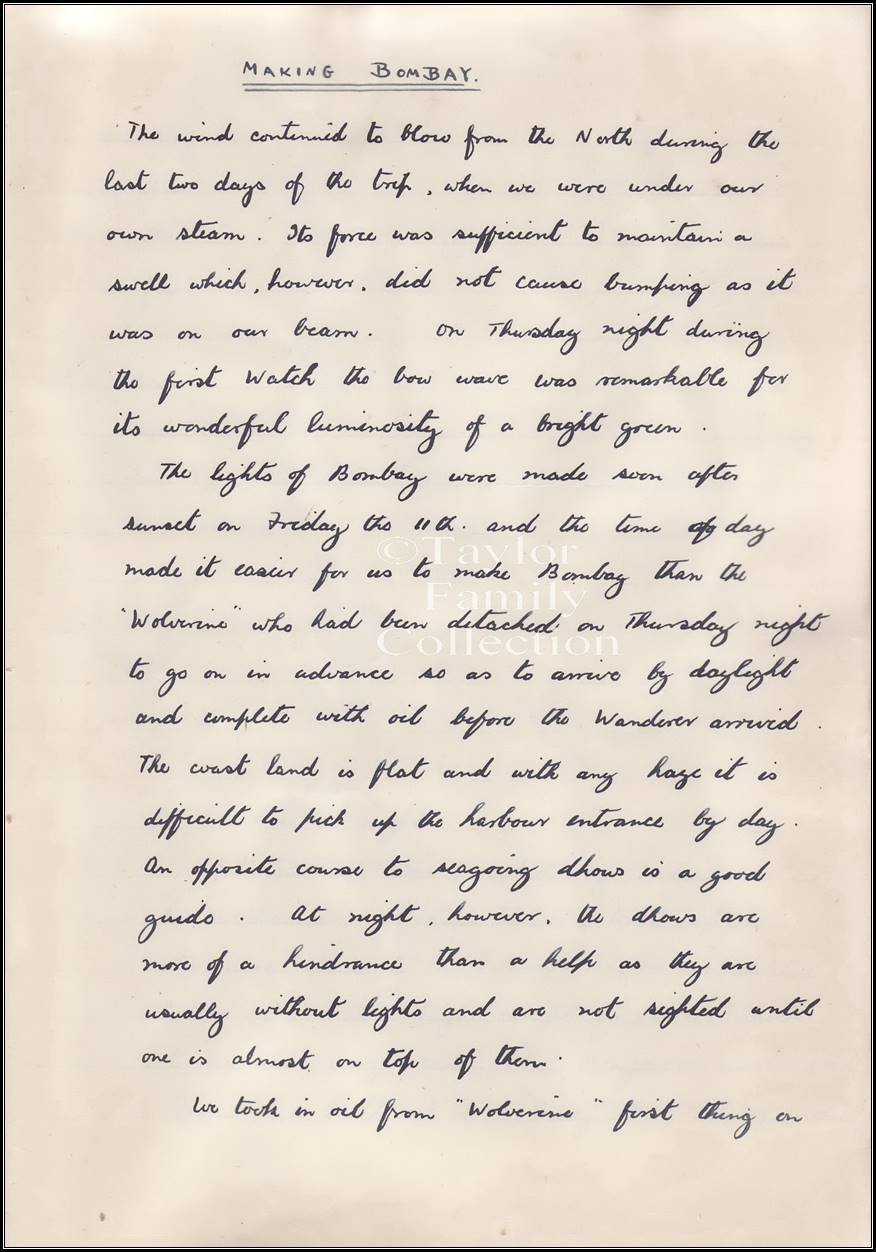 MAKING BOMBAY.
The wind continued to blow from the North during the
last two days of the trip, when we were under our
own steam. Its force was sufficient to maintain a
swell which, however, did not cause bumping as it
was on our beam. On Thursday night during
the first Watch the bow wave was remarkable for
its wonderful luminosity of a bright green.
The lights of Bombay were made soon after
sunset on Friday the 11th. and the time of day
made it easier for us to make Bombay than the
"Wolverine" who had been detached on Thursday night
to go on in advance so as to arrive by daylight
and complete with oil before the Wanderer arrived.
The coast land is flat and with any haze it is
difficult to pick up the harbour entrance by day.
An opposite course to seagoing dhows is a good
guide. At night, however, the dhows are
more of a hindrance than a help as they are
usually without lights and are not sighted until
one is almost on top of them.
We took in oil from "Wolverine" first thing on
©Taylor
Family
Collection